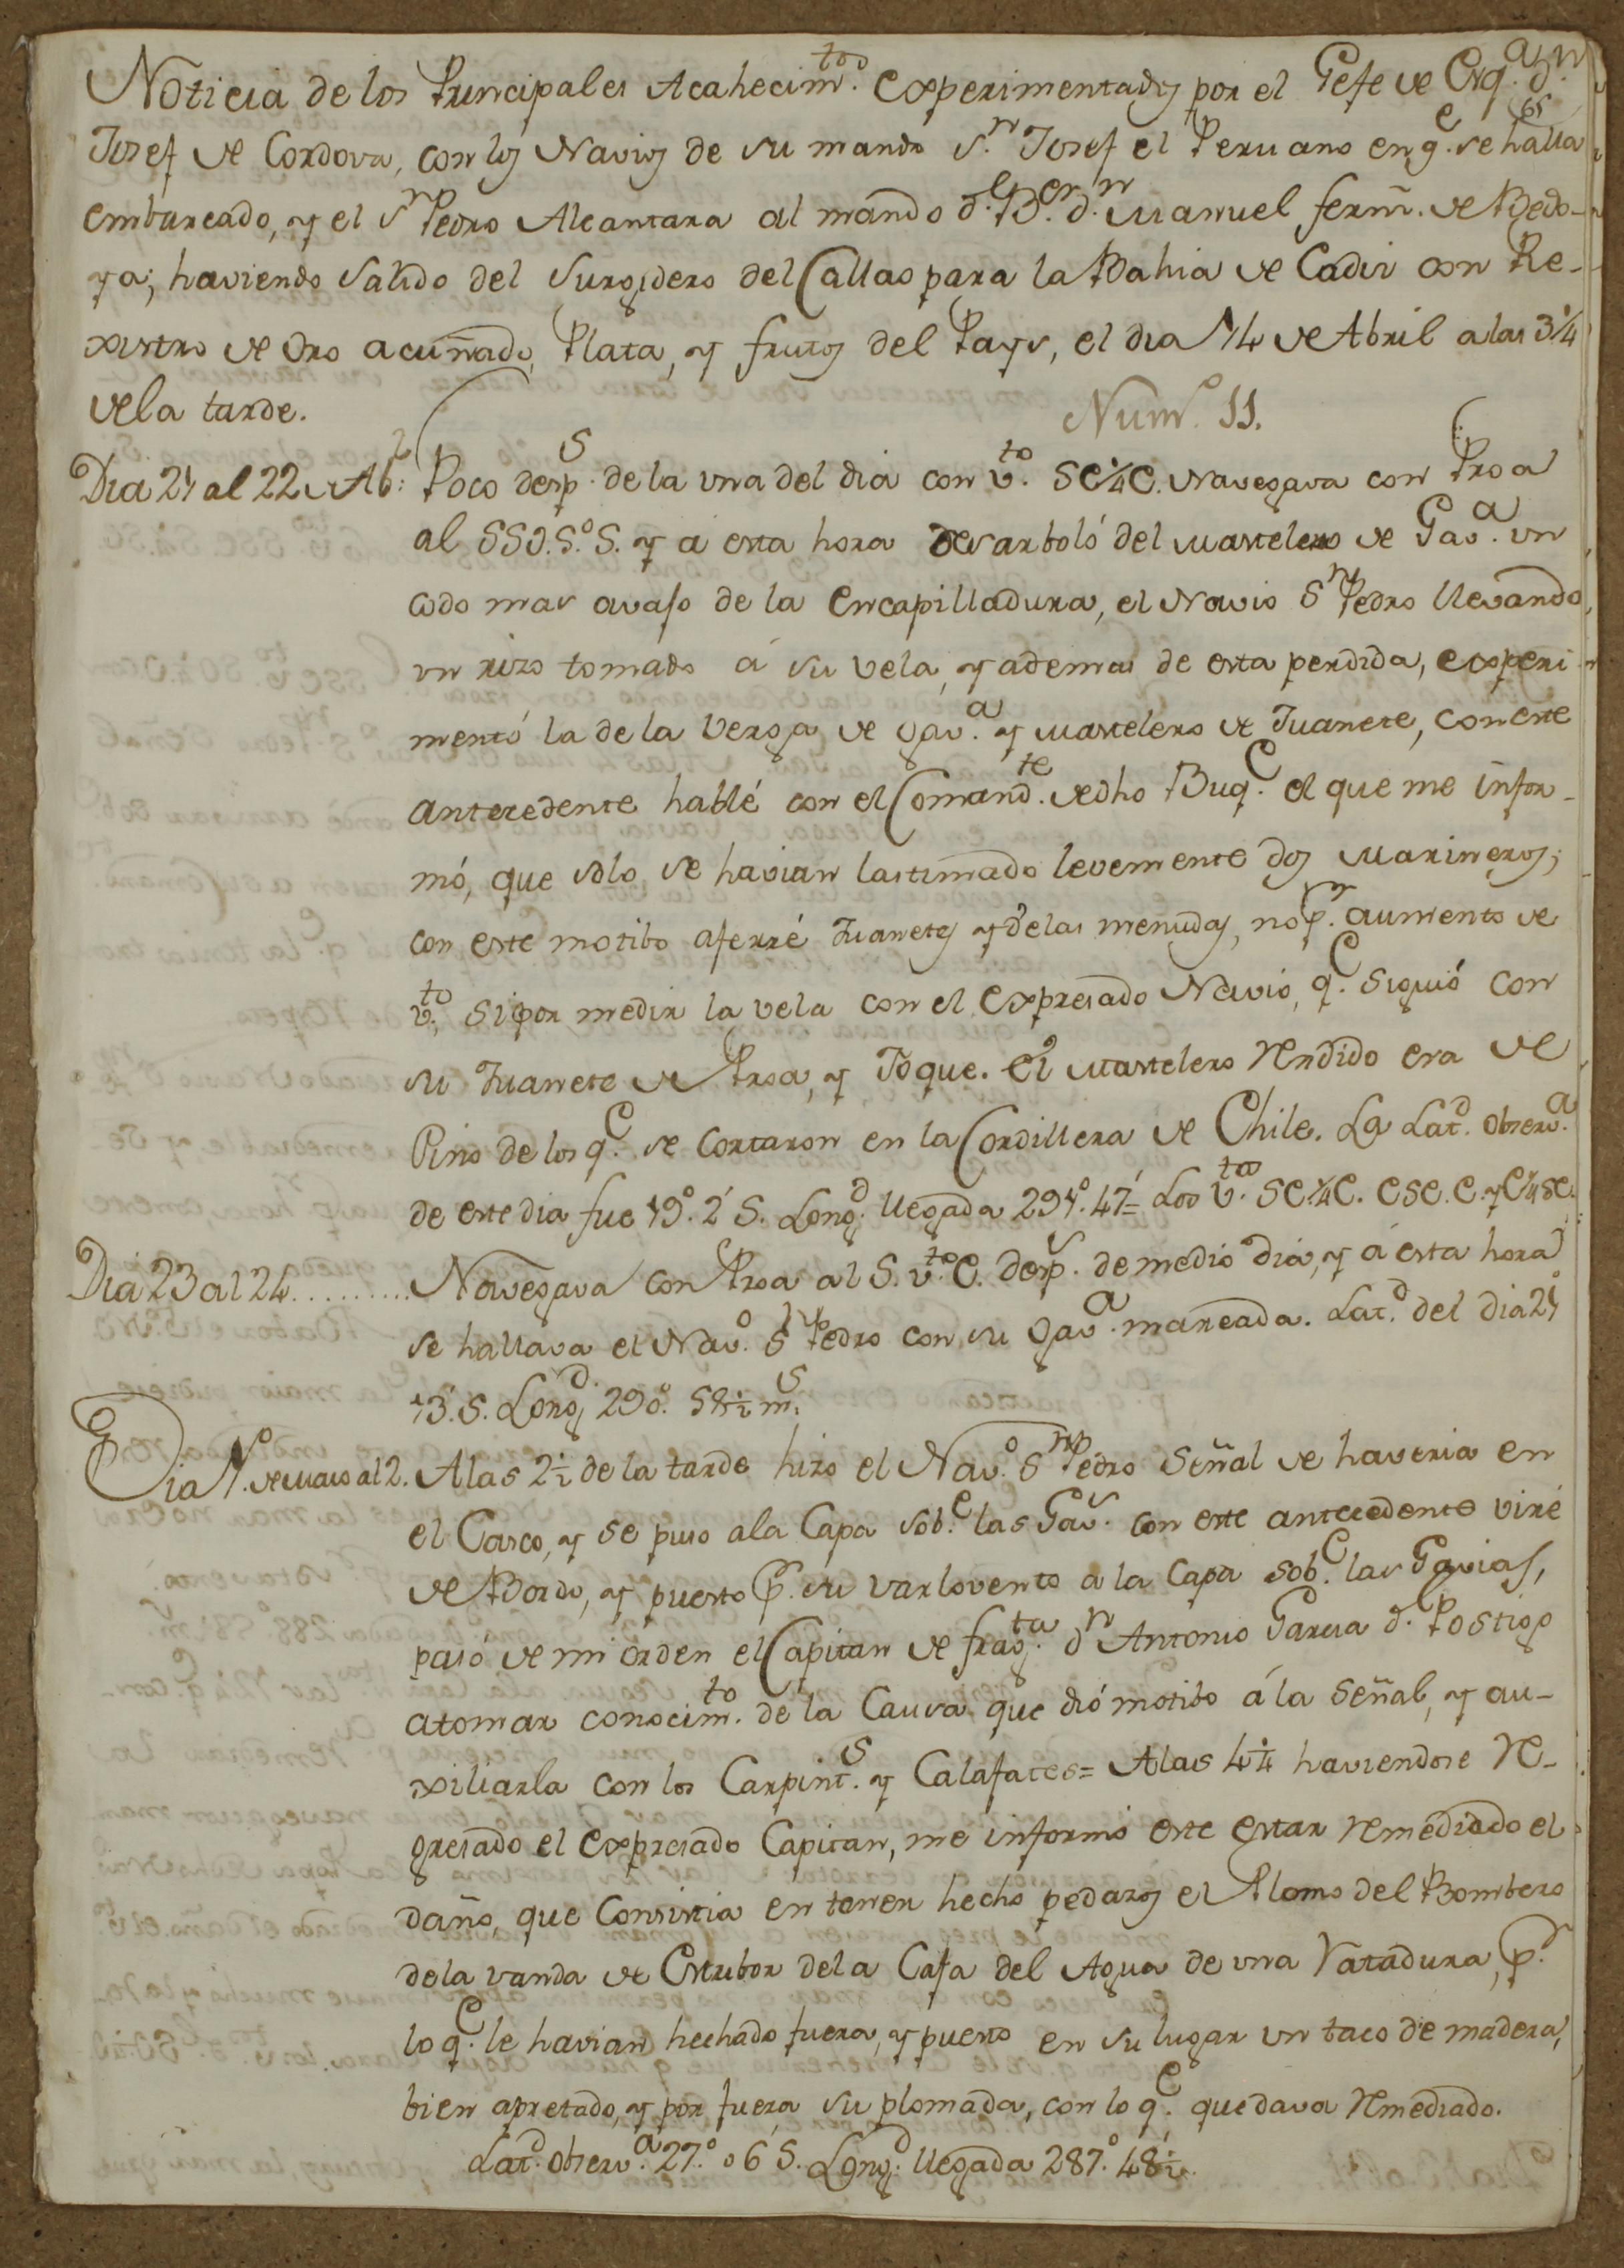 Noticia de los Principales Acahecim.tos experimentados por el Gefe de Esq.a d.n
65
Josef de Cordova, con los Navios de su mando S.n Josef el Peruano en q.e se halla
embarcado, y el S.n Pedro Alcantara al mando d.l B.er d.n Manuel ferñ. de Bedo-
ya; haviendo salido del Surgidero del Callao para la Bahia de Cadiz con Re-
xistro de Oro acuñado, Plata, y frutos del Pays, el dia 14 de Abril a las 3¼
de la tarde.
Num.o 11.
Dia 21 al 22 Ab.l Poco desp.s de la una del dia con v.to SE¼E. Navegava con Proa
al SSO.S.oS. y a esta hora desarboló del Mastelero de Gav.a un
codo mas avajo de la Encapilladura, el Navio S.n Pedro llevando
un rizo tomado á su vela, y ademas de esta perdida, experi-
mentó la de la Verga de Gav.a y Mastelero de Juanete, con este
antecedente hablé con el Comand.te de dho Buq.e el que me infor-
mó, que solo se havian lastimado levemente dos Marineros;
con este motibo aferré Juanetes y velas menudas, no p.r aumento de
v.to, si por medir la vela con el expresado Navio, q.e siguió con
su Juanete de Proa, y Foque. El Mastelero rendido era de
Pino de los q.e se cortaron en la Cordillera de Chile. La Lat.d observ.a
de este dia fue 19.o 2' S. Long.d llegada 291.o 47' = Los v.tos SE¼E. ESE. E. y E¼SE.
Dia 23 al 24.......... Navegava con Proa al S. v.to E. desp.s de medio dia, y á esta hora
se hallava el Nav.o S.n Pedro con su Gav.a mareada. Lat.d del dia 21.o
13' S. Long.d 290.o 58½ m.s
Dia 1.o de Maio al 2. A las 2½ de la tarde hizo el Nav.o S.n Pedro Señal de haveria en
el Casco, y se puso a la Capa sob.e las Gav.s con este antecedente viré
de Bordo, y puesto p.r su varlovento a la Capa sob.e las Gavias,
pasó de mi orden el Capitan de frag.ta d.n Antonio Garcia d.e Postigo
a tomar conocim.to de la Causa que dió motibo á la Señal, y au-
xiliarla con los Carpint.s y Calafates = A las 4¼ haviendose re-
gresado el expresado Capitan, me informó este estar remediado el
daño, que Consistia en tener hecho pedazos el Plomo del Bombero
de la vanda de Estribor de la Caja del Agua de una Ratadura, p.r
lo q.e le havian hechado fuera, y puesto en su lugar un taco de madera,
bien apretado, y por fuera su plomada, con lo q.e quedava remediado.
Lat.d observ.a 27.o 06' S. Long.d llegada 287.o 48½.